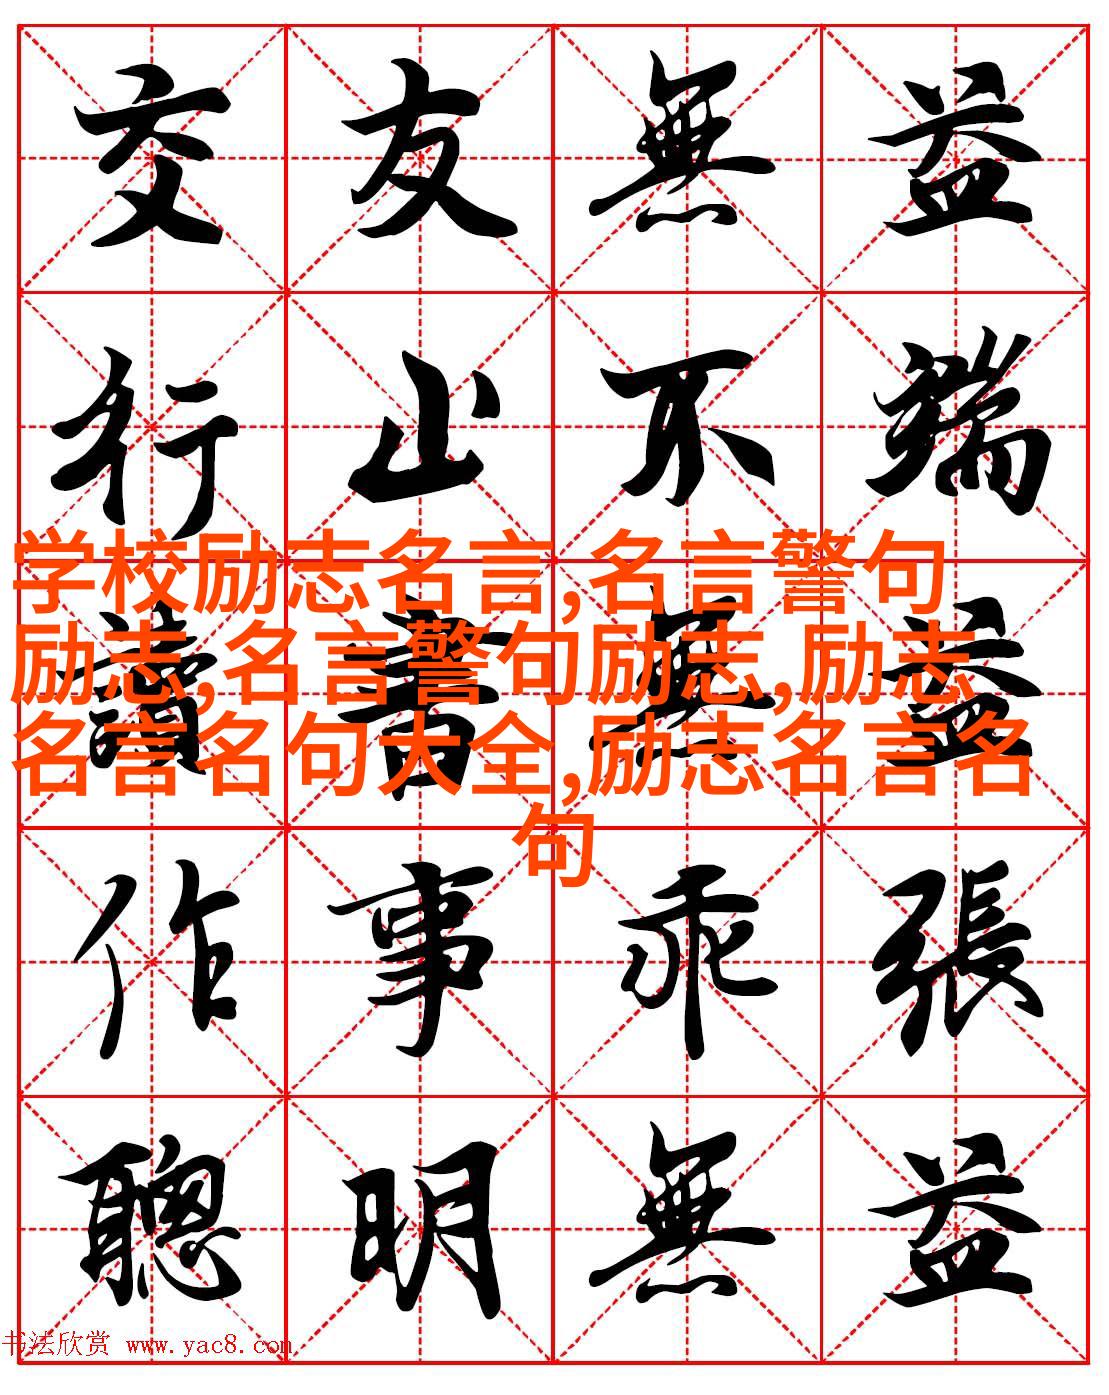 交友無益
行止不端
学校励志名言,名言警句
励志,名言警句励志,励志
名言名句大全,励志名言名
句
讀書無益
作事乖張
聰明無益
书法欣赏 www.yac8.com